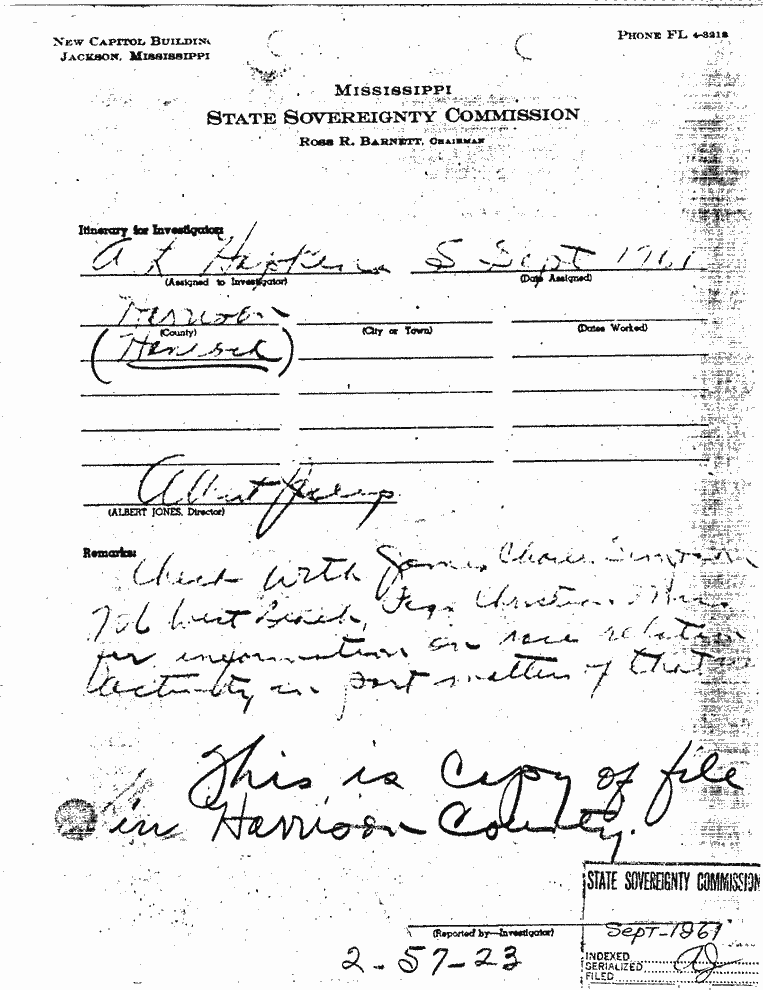 NEW CAPITOL BUILDING
JACKSON, MISSISSIPPI
PHONE FL 4-3218
MISSISSIPPI
STATE SOVEREIGNTY COMMISSION
ROSS R. BARNETT, CHAIRMAN
Itinerary for Investigator:
A L Hopkins 5 Sept 1961
(Assigned to Investigator) (Date Assigned)
Harrison
(County) (City or Town) (Dates Worked)
(Hancock)
Albert Jones
(ALBERT JONES, Director)
Remarks:
Check with James Charles Simpson
706 West Beach, Pass Christian Miss.
for information on race relation
activity in part matters of that
This is copy of file
in Harrison County.
STATE SOVEREIGNTY COMMISSION
Sept-1961
(Reported by—Investigator)
INDEXED
SERIALIZED
FILED
2-57-23